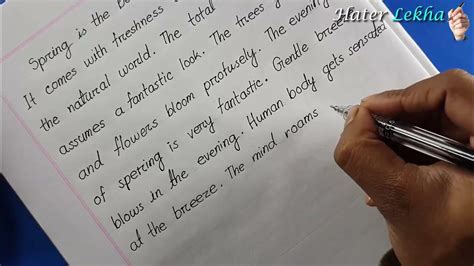 Hater Lekha
Spering is the be
It comes with freshness
the natural world. The total
assumes a fantastic look. The trees g
and flowers bloom profusely. The evening
of spering is very fantastic. Gentle breeze
blows in the evening. Human body gets sensate
at the breeze. The mind roams